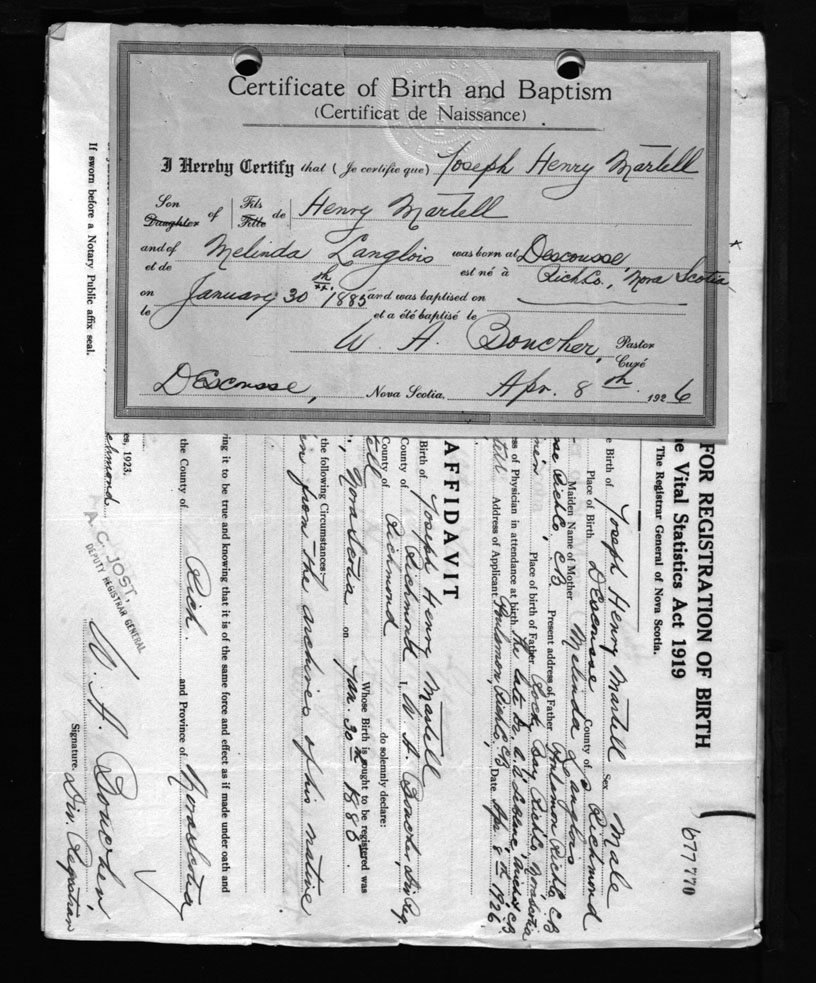 Certificate of Birth and Baptism
(Certificat de Naissance)
I Hereby Certify that (Je certifie que) Joseph Henry Martell
Son Fils
Daughter of Fille de Henry Martell
and of Melinda Langlois was born at Descousse
et de est né à Rich Co., Nova Scotia
on January 30th 1885 and was baptised on
le et a été baptisé le
W. A. Boucher, Pastor
Curé
DEscousse, Nova Scotia. Apr. 8th 1926
677770
FOR REGISTRATION OF BIRTH
Vital Statistics Act 1919
The Registrar General of Nova Scotia.
Birth of Joseph Henry Martell Sex Male
Place of Birth DEscousse County of Richmond
Maiden Name of Mother Melinda Langlois
Rich Co, C.B. Present address of Father Poulamon Rich Co. C.B.
Place of birth of Father Rich Co, Nova Scotia
of Physician in attendance at birth The late Dr.
Address of Applicant Poulamon, Rich Co, C.B. Date Apr. 8th 1926
AFFIDAVIT
Birth of Joseph Henry Martell
County of Richmond I, W. A. Boucher, Div Reg.
County of Richmond do solemnly declare:
Whose Birth is sought to be registered was
Nova Scotia on Jan. 30th 188
the following Circumstances:—
from the archives of his native
ing it to be true and knowing that it is of the same force and effect as if made under oath and
the County of Rich. and Province of Nova Scotia
1923.
Richmond
A. C. JOST,
DEPUTY REGISTRAR GENERAL
W. A. Boucher,
Signature. Div. Registrar
If sworn before a Notary Public affix seal.